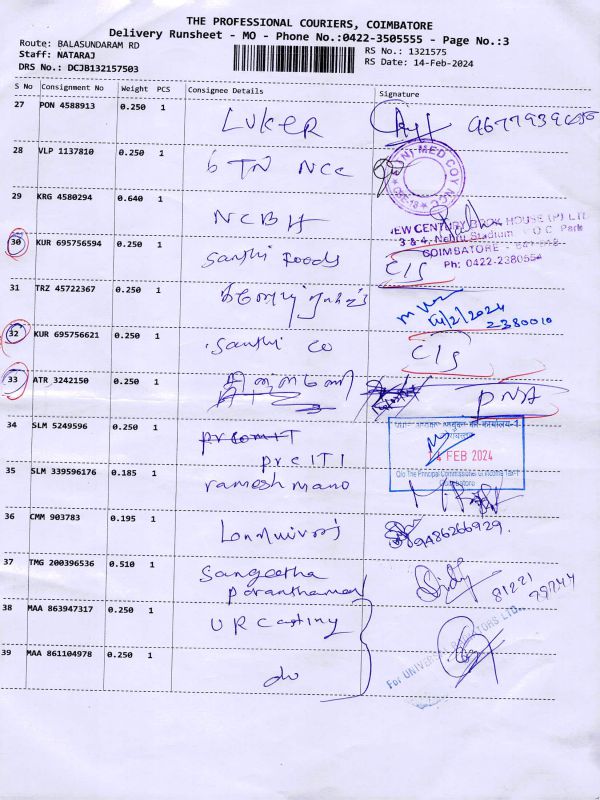 THE PROFESSIONAL COURIERS, COIMBATORE
Delivery Runsheet - MO - Phone No.:0422-3505555 - Page No.:3
Route: BALASUNDARAM RD
Staff: NATARAJ
DRS No.: DCJB132157503
RS No.: 1321575
RS Date: 14-Feb-2024
S No Consignment No Weight PCS Consignee Details Signature
27 PON 4588913 0.250 1 LUKER
28 VLP 1137810 0.250 1 6 TN NCC
UNI MED COY NCC
29 KRG 4580294 0.640 1 NCBH
NEW CENTURY BOOK HOUSE (P) LTD
3 & 4, Nehru Stadium, V O C Park
COIMBATORE - 641 018
Ph: 0422-2380554
30 KUR 695756594 0.250 1 Santhi Foods C/s
31 TRZ 45722367 0.250 1
14/2/2024
2380010
32 KUR 695756621 0.250 1 Santhi co C/s
33 ATR 3242150 0.250 1 PNA
34 SLM 5249596 0.250 1
PrCITI
14 FEB 2024
O/o The Principal Commissioner of Income Tax-1
Coimbatore
35 SLM 339596176 0.185 1 ramesh mano
36 CMM 903783 0.195 1 9486266929.
37 TMG 200396536 0.510 1 Sangeetha
Poranthaman
81221
79744
38 MAA 863947317 0.250 1 URCasting
39 MAA 861104978 0.250 1 do
For UNIVERSAL